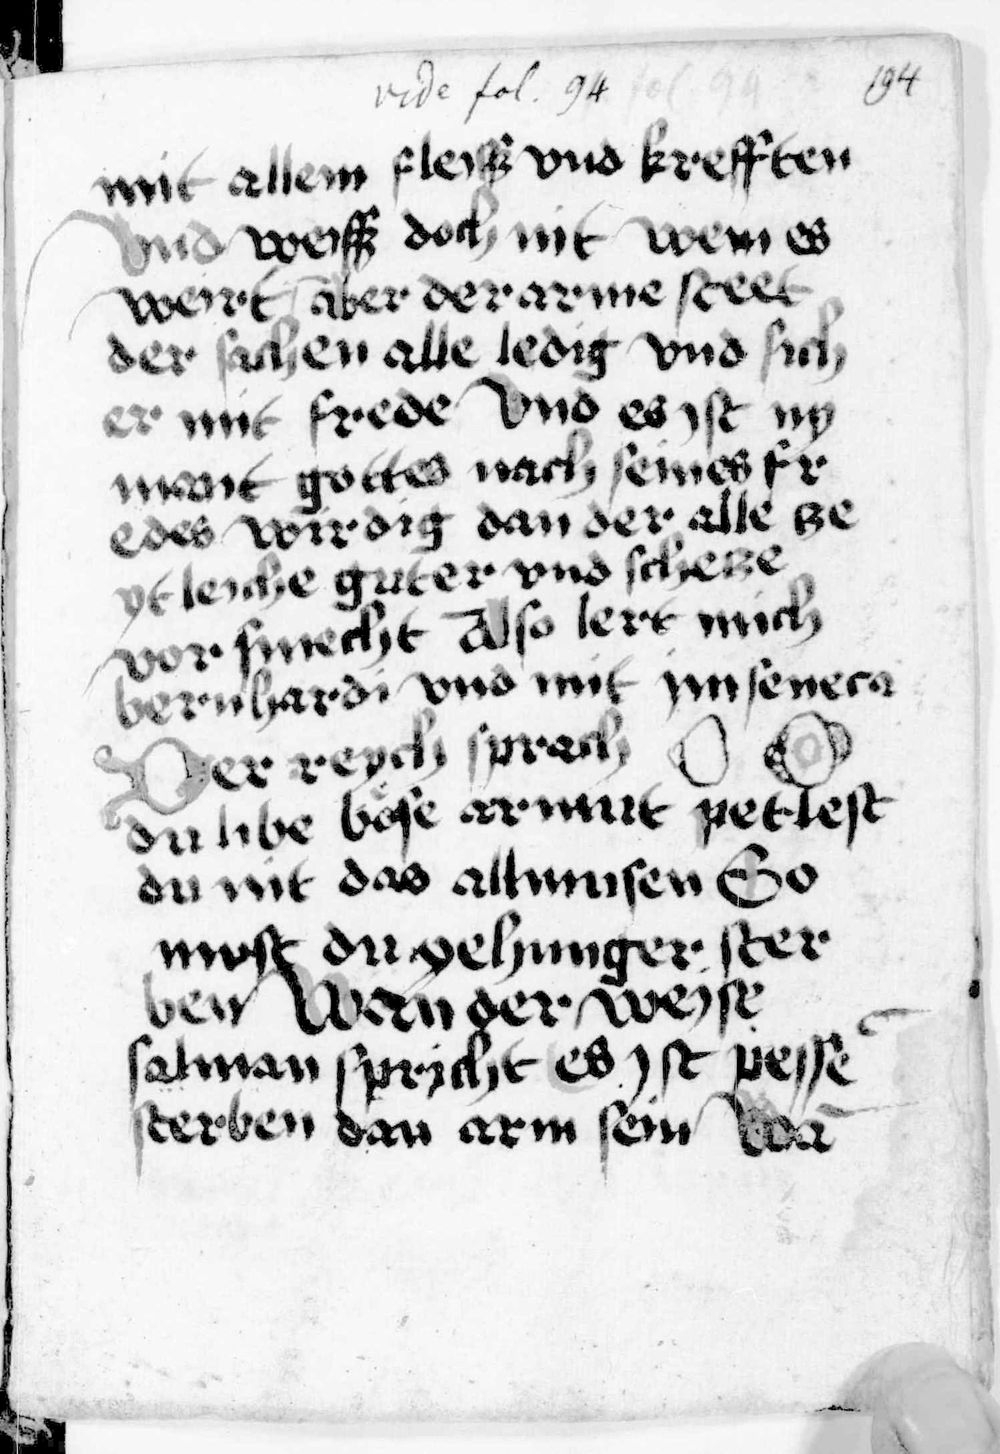 vide fol. 94
194
mit allem fleysß vnd krefften
Vnd weysß doch nit wem es
weirt aber der arme steet
der sachen alle ledig vnd sich
er mit frede Vnd es ist ny
mant gottes nach seines fr
edes wirdig dan der alle ze
ytleiche guter vnd schetze
vor smecht Also lert mich
bernhardi vnd mit ym seneca
Der reych sprach O O
du libe böse armut petlest
du nit das allmusen So
must du gehunger ster
ben Wan der weyse
salman spricht es yst pesse
sterben dan arm sein Wa